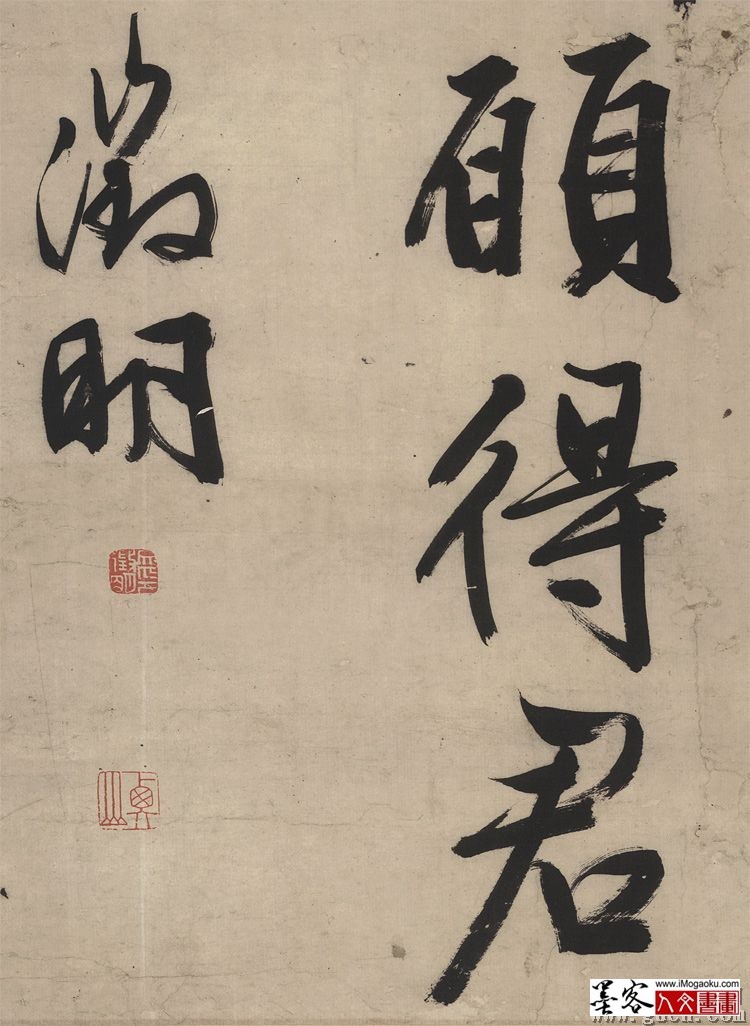 願得君
徵明
墨客
www.iMogaoku.com
人文書畫